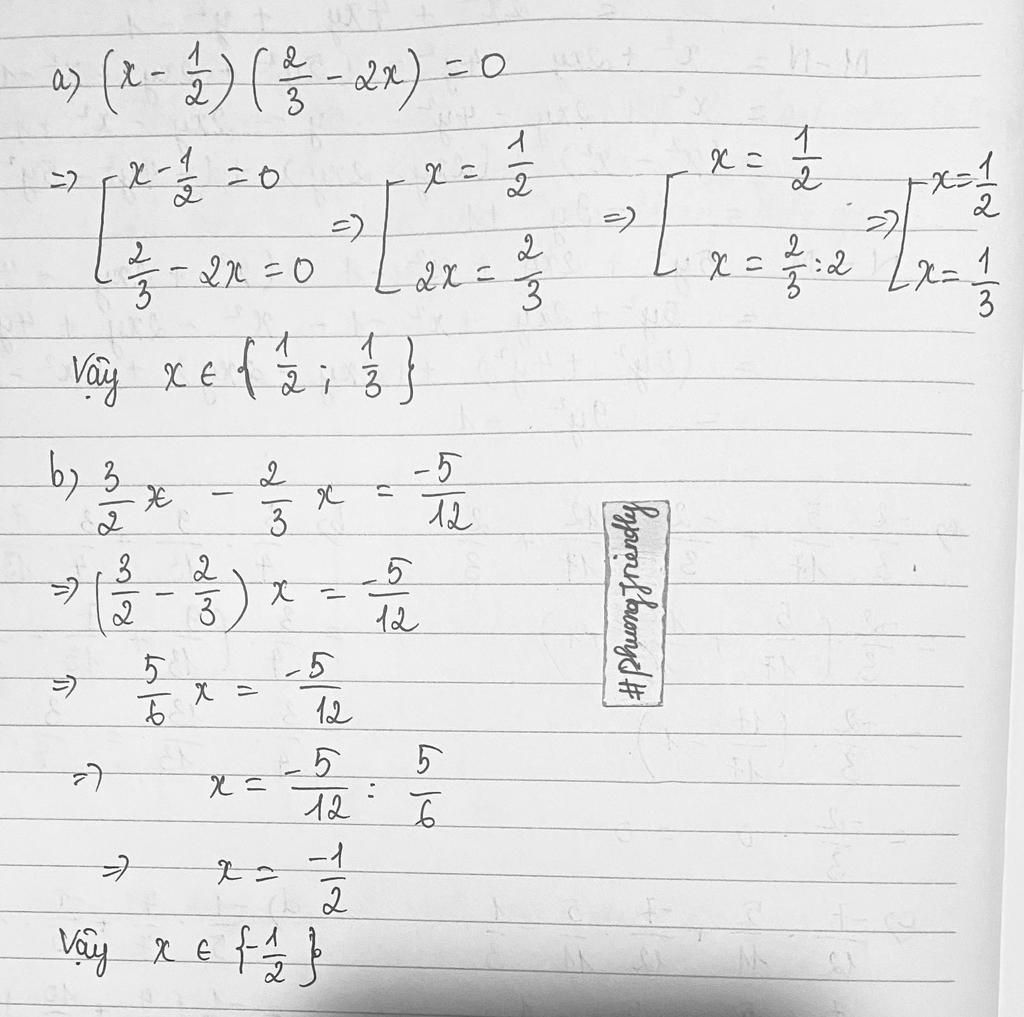 a) (x - 1/2) (2/3 - 2x) = 0
=> [ x - 1/2 = 0 ; 2/3 - 2x = 0 => [ x = 1/2 ; 2x = 2/3 => [ x = 1/2 ; x = 2/3 : 2 => [ x = 1/2 ; x = 1/3
Vậy x ∈ { 1/2 ; 1/3 }
b) 3/2 x - 2/3 x = -5/12
=> (3/2 - 2/3) x = -5/12
=> 5/6 x = -5/12
=> x = -5/12 : 5/6
=> x = -1/2
Vậy x ∈ {-1/2}